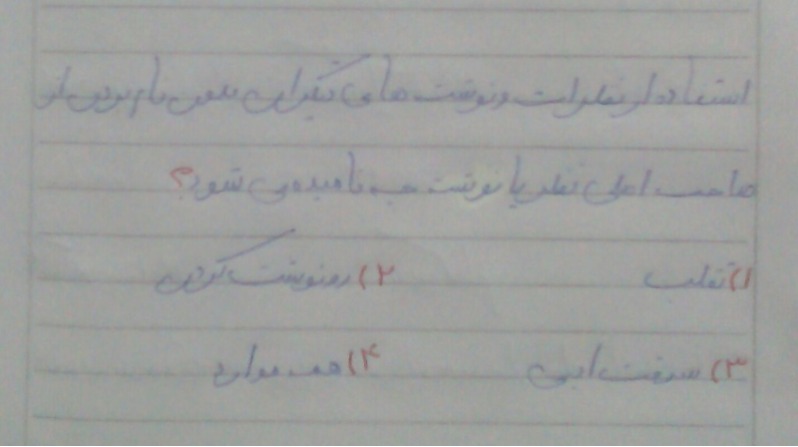 استفاده از نظرات ونوشته های دیگران بدون نام بردن از
صاحب اصلی نظر یا نوشته چه نامیده می شود؟
۱) تقلب ۲) رونوشت کردن
۳) سرقت ادبی ۴) همه موارد